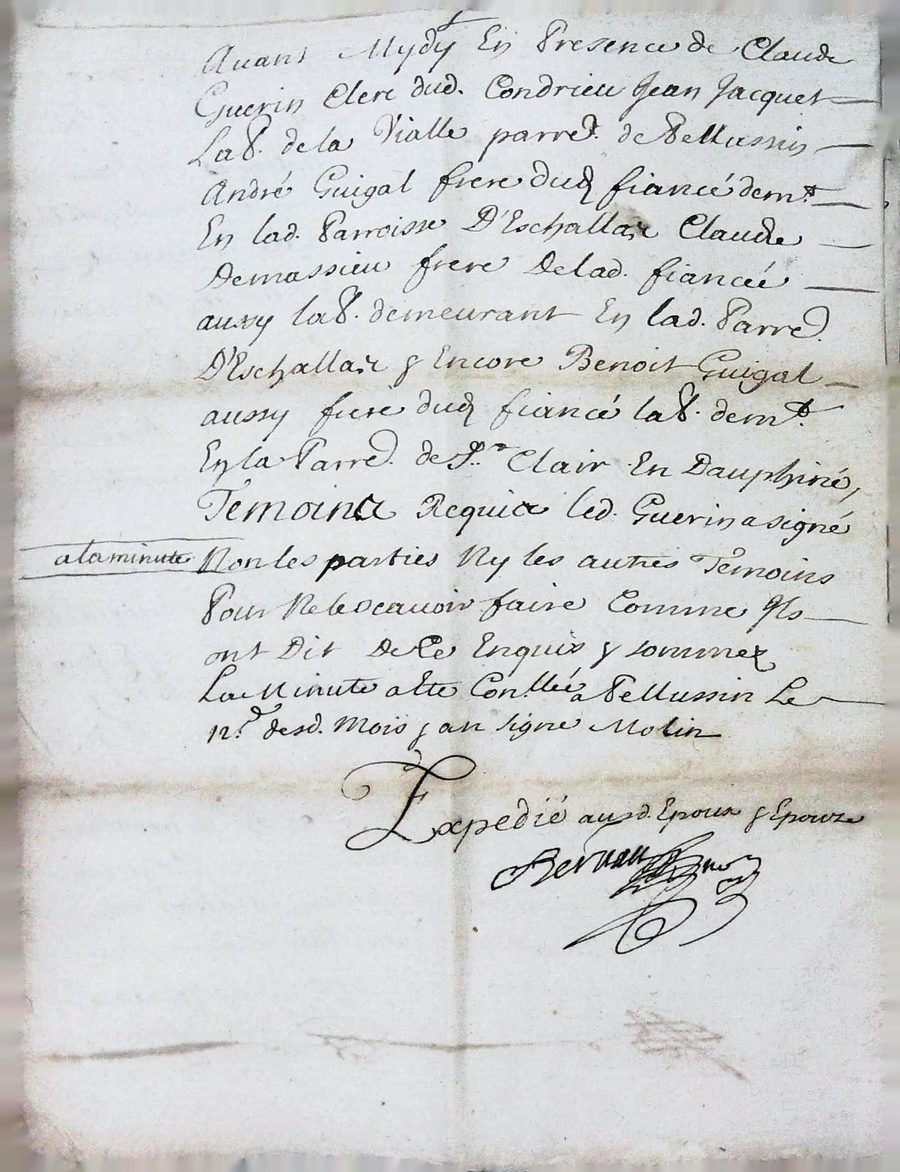 Auant Mydy En Presence de Claude
Guerin Clerc dud. Condrieu Jean Jacquet
Lab. de la Vialle parre. de Pellussin
André Guigal frere dud fiancé demt.
En lad. Parroisse D'Eschallas Claude
Demassieu frere Delad. fiancéé
aussy lab. demeurant En lad. Parre.
D'Eschallas & Encore Benoit Guigal
aussy frere dud fiancé lab. demt.
En la Parre. de St. Clair En Dauphiné,
Temoins Requis led. Guerin a signé
a la minute Non les parties Ny les autres Temoins
Pour Ne le scauoir faire Comme Ils
ont Dit de Ce Enquis & sommez
La Minute a Ete Conllée a Pellussin Le
12e. desd. Mois & an signé Molin
Expedié ausd. Epoux & Epouze